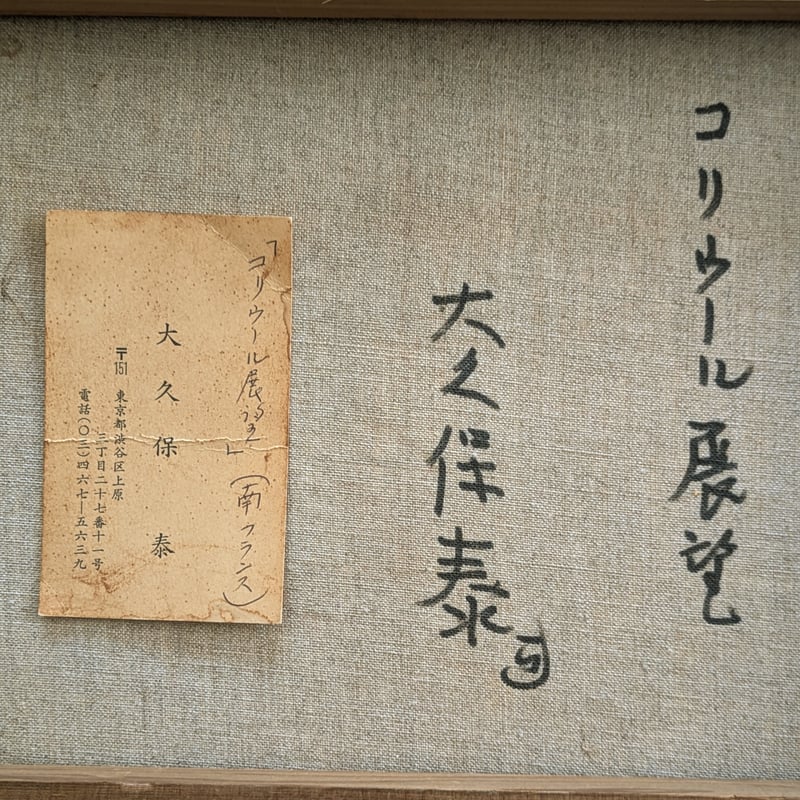 コリウール展望
大久保泰
「コリウール展望」(南フランス)
大久保 泰
〒151 東京都渋谷区上原
三丁目二十七番十一号
電話(〇三)四六七ー五六三九